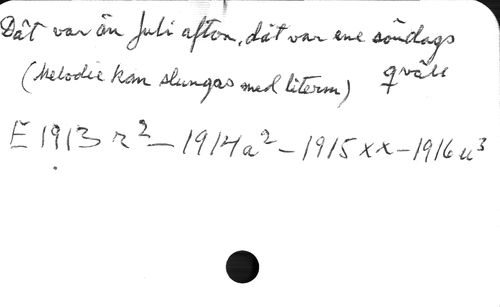 Dåt var ån Juli afton, dåt var ene såndags
qvåll
(Melodie kan slungas med literm)
E 1913 r² – 1914 a² – 1915 xx – 1916 u³